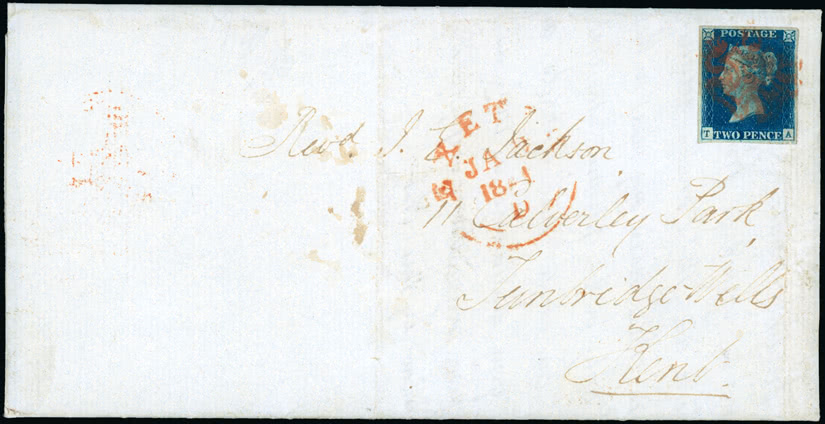 POSTAGE
TWO PENCE
T A
JA
184
D
Revd. J. E. Jackson
11 Calverley Park
Tunbridge Wells
Kent.